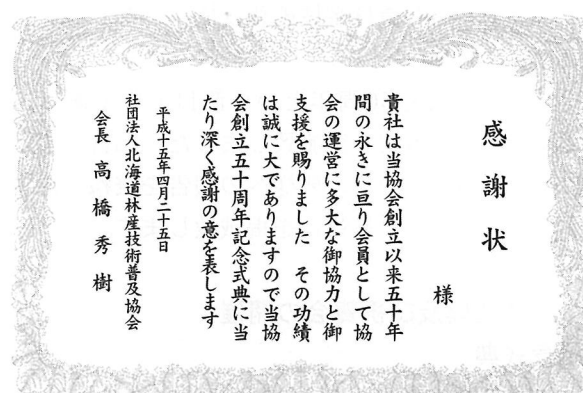 感謝状
様
貴社は当協会創立以来五十年
間の永きに亘り会員として協
会の運営に多大な御協力と御
支援を賜りました　その功績
は誠に大でありますので当協
会創立五十周年記念式典に当
たり深く感謝の意を表します
平成十五年四月二十五日
社団法人北海道林産技術普及協会
会長　高橋秀樹